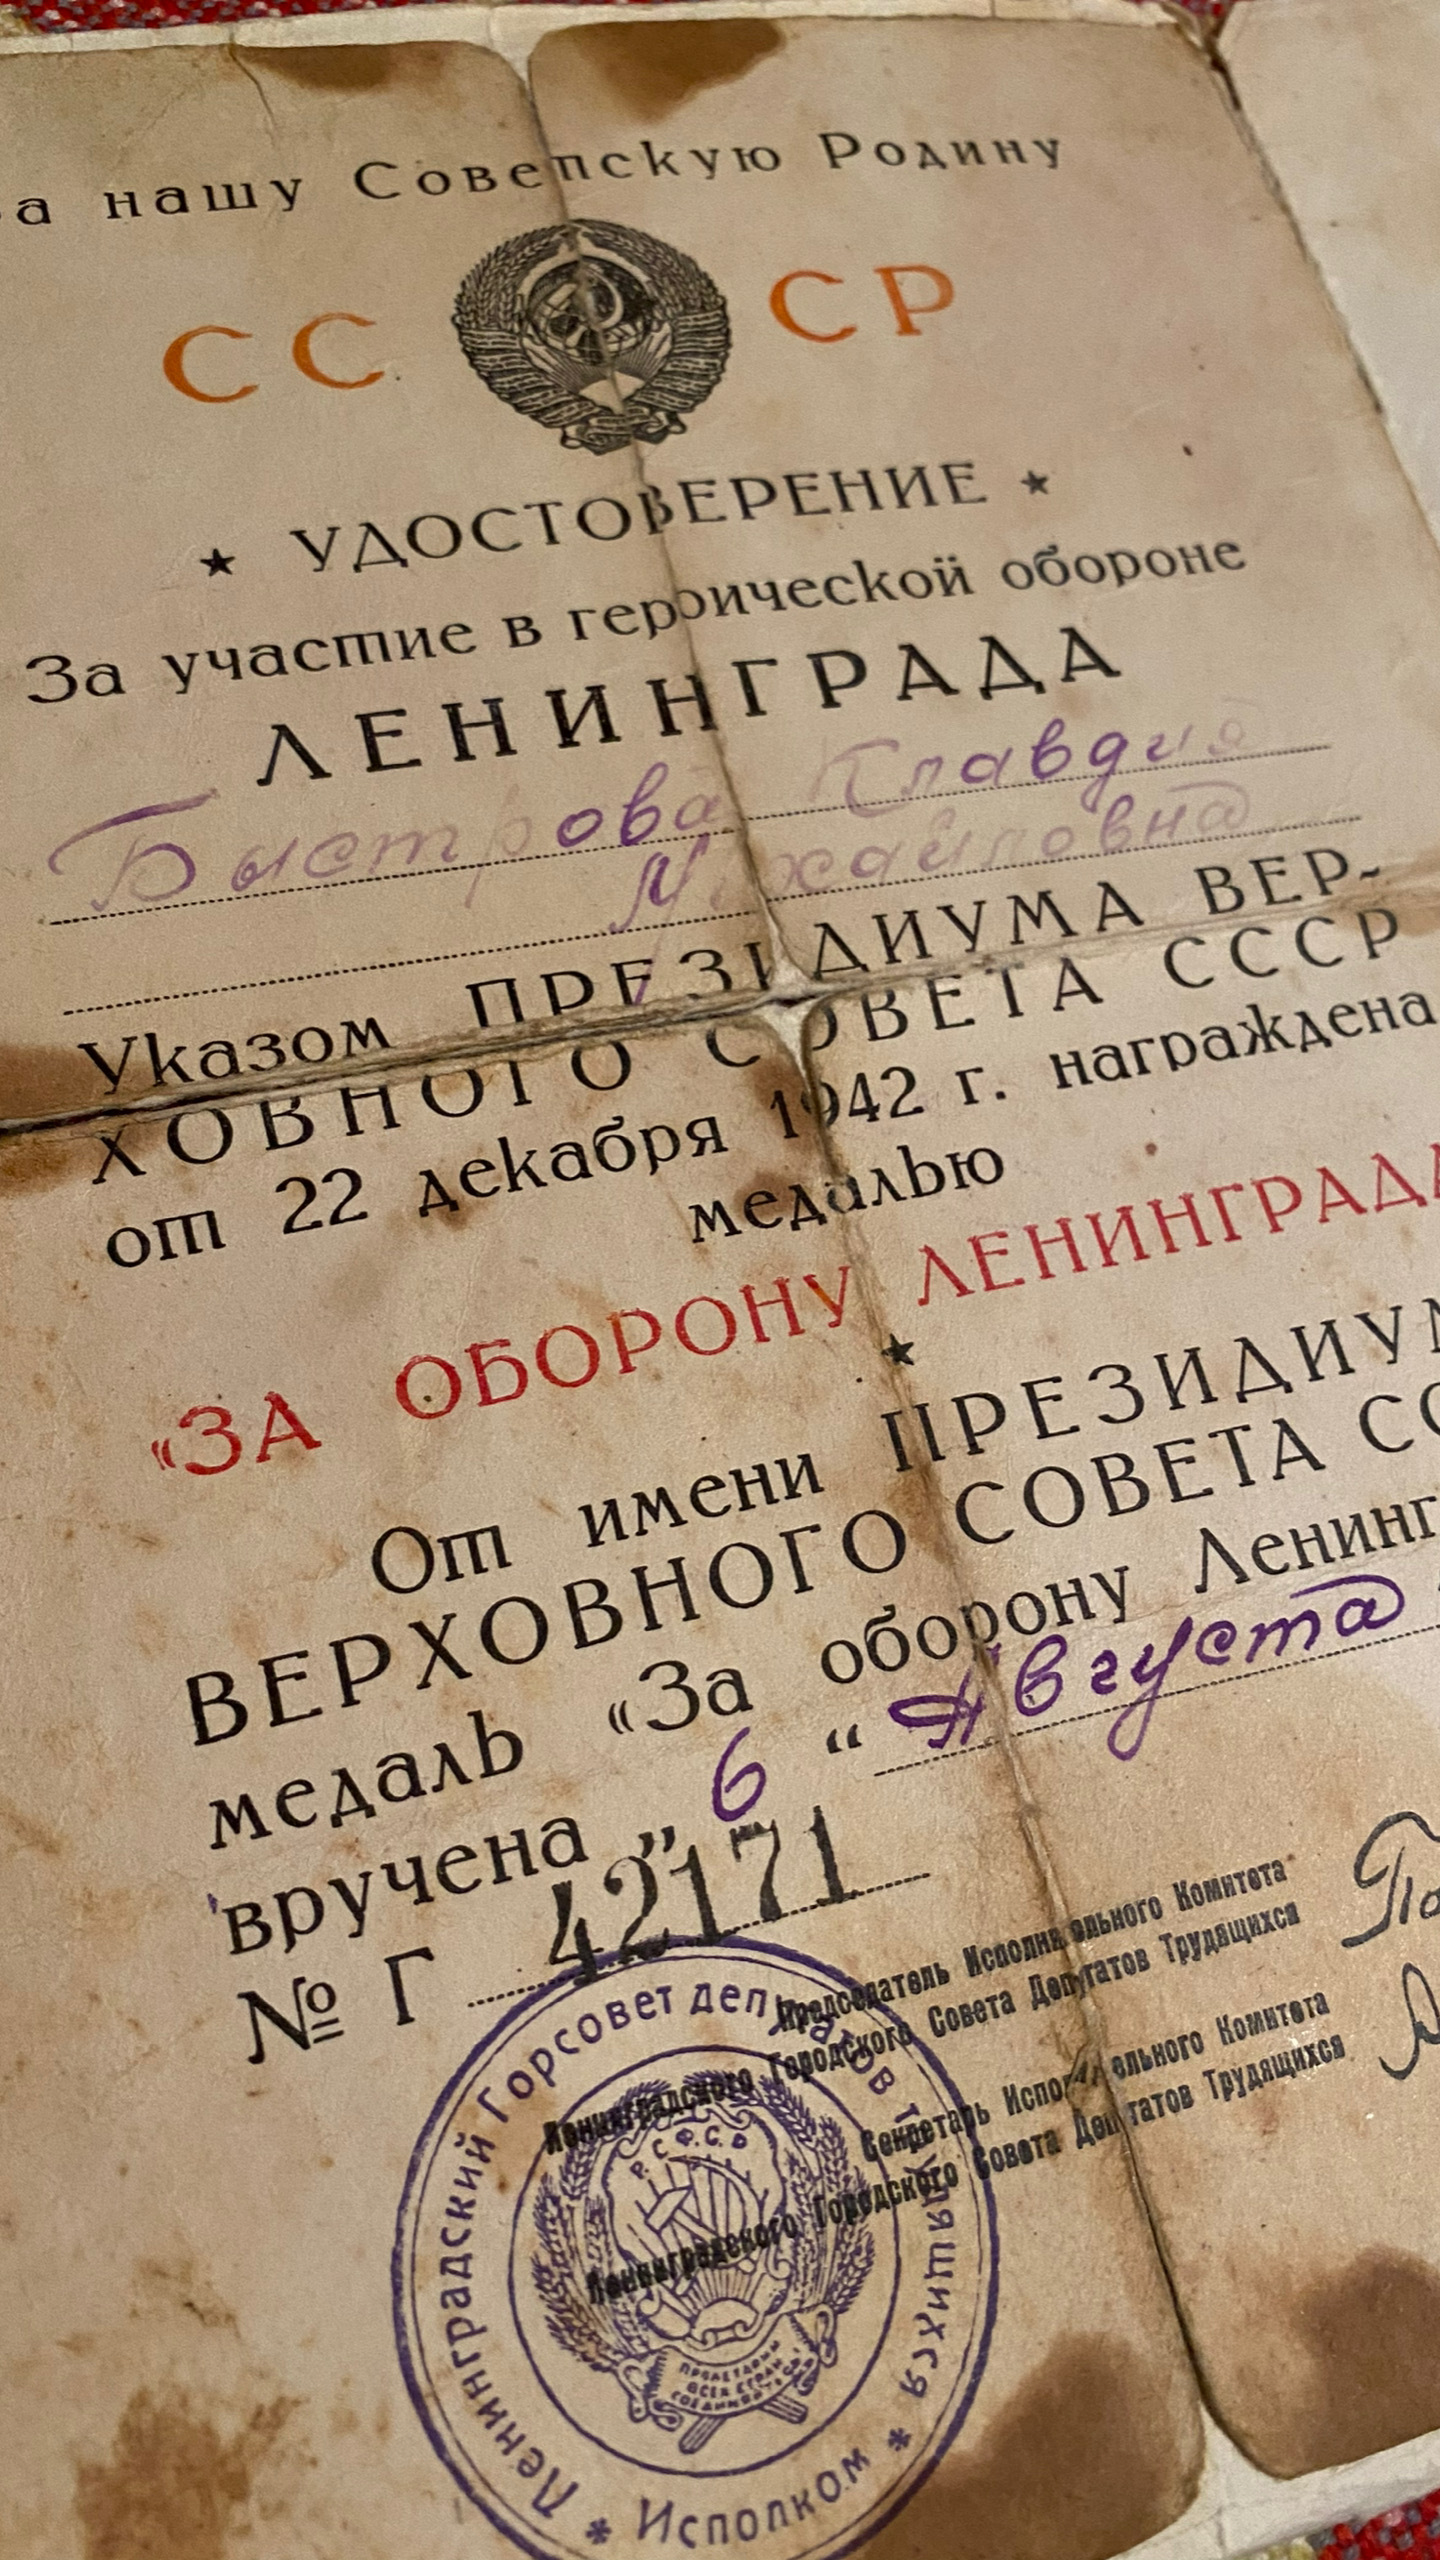 За нашу Советскую Родину
СССР
★ УДОСТОВЕРЕНИЕ ★
За участие в героической обороне
ЛЕНИНГРАДА
Быстрова Клавдия
Михайловна
Указом ПРЕЗИДИУМА ВЕР-
ХОВНОГО СОВЕТА СССР
от 22 декабря 1942 г. награждена
медалью
«ЗА ОБОРОНУ ЛЕНИНГРАДА
★
От имени ПРЕЗИДИУМ
ВЕРХОВНОГО СОВЕТА СС
медаль «За оборону Ленинг
вручена „ 6 “ Августа
№ Г 42171
Председатель Исполнительного Комитета
Ленинградского Городского Совета Депутатов Трудящихся
Секретарь Исполнительного Комитета
Ленинградского Городского Совета Депутатов Трудящихся
Ленинградский Горсовет депутатов трудящихся * Исполком *
Р.С.Ф.С.Р.
ПРОЛЕТАРИИ
ВСЕХ СТРАН
СОЕДИНЯЙТЕСЬ!